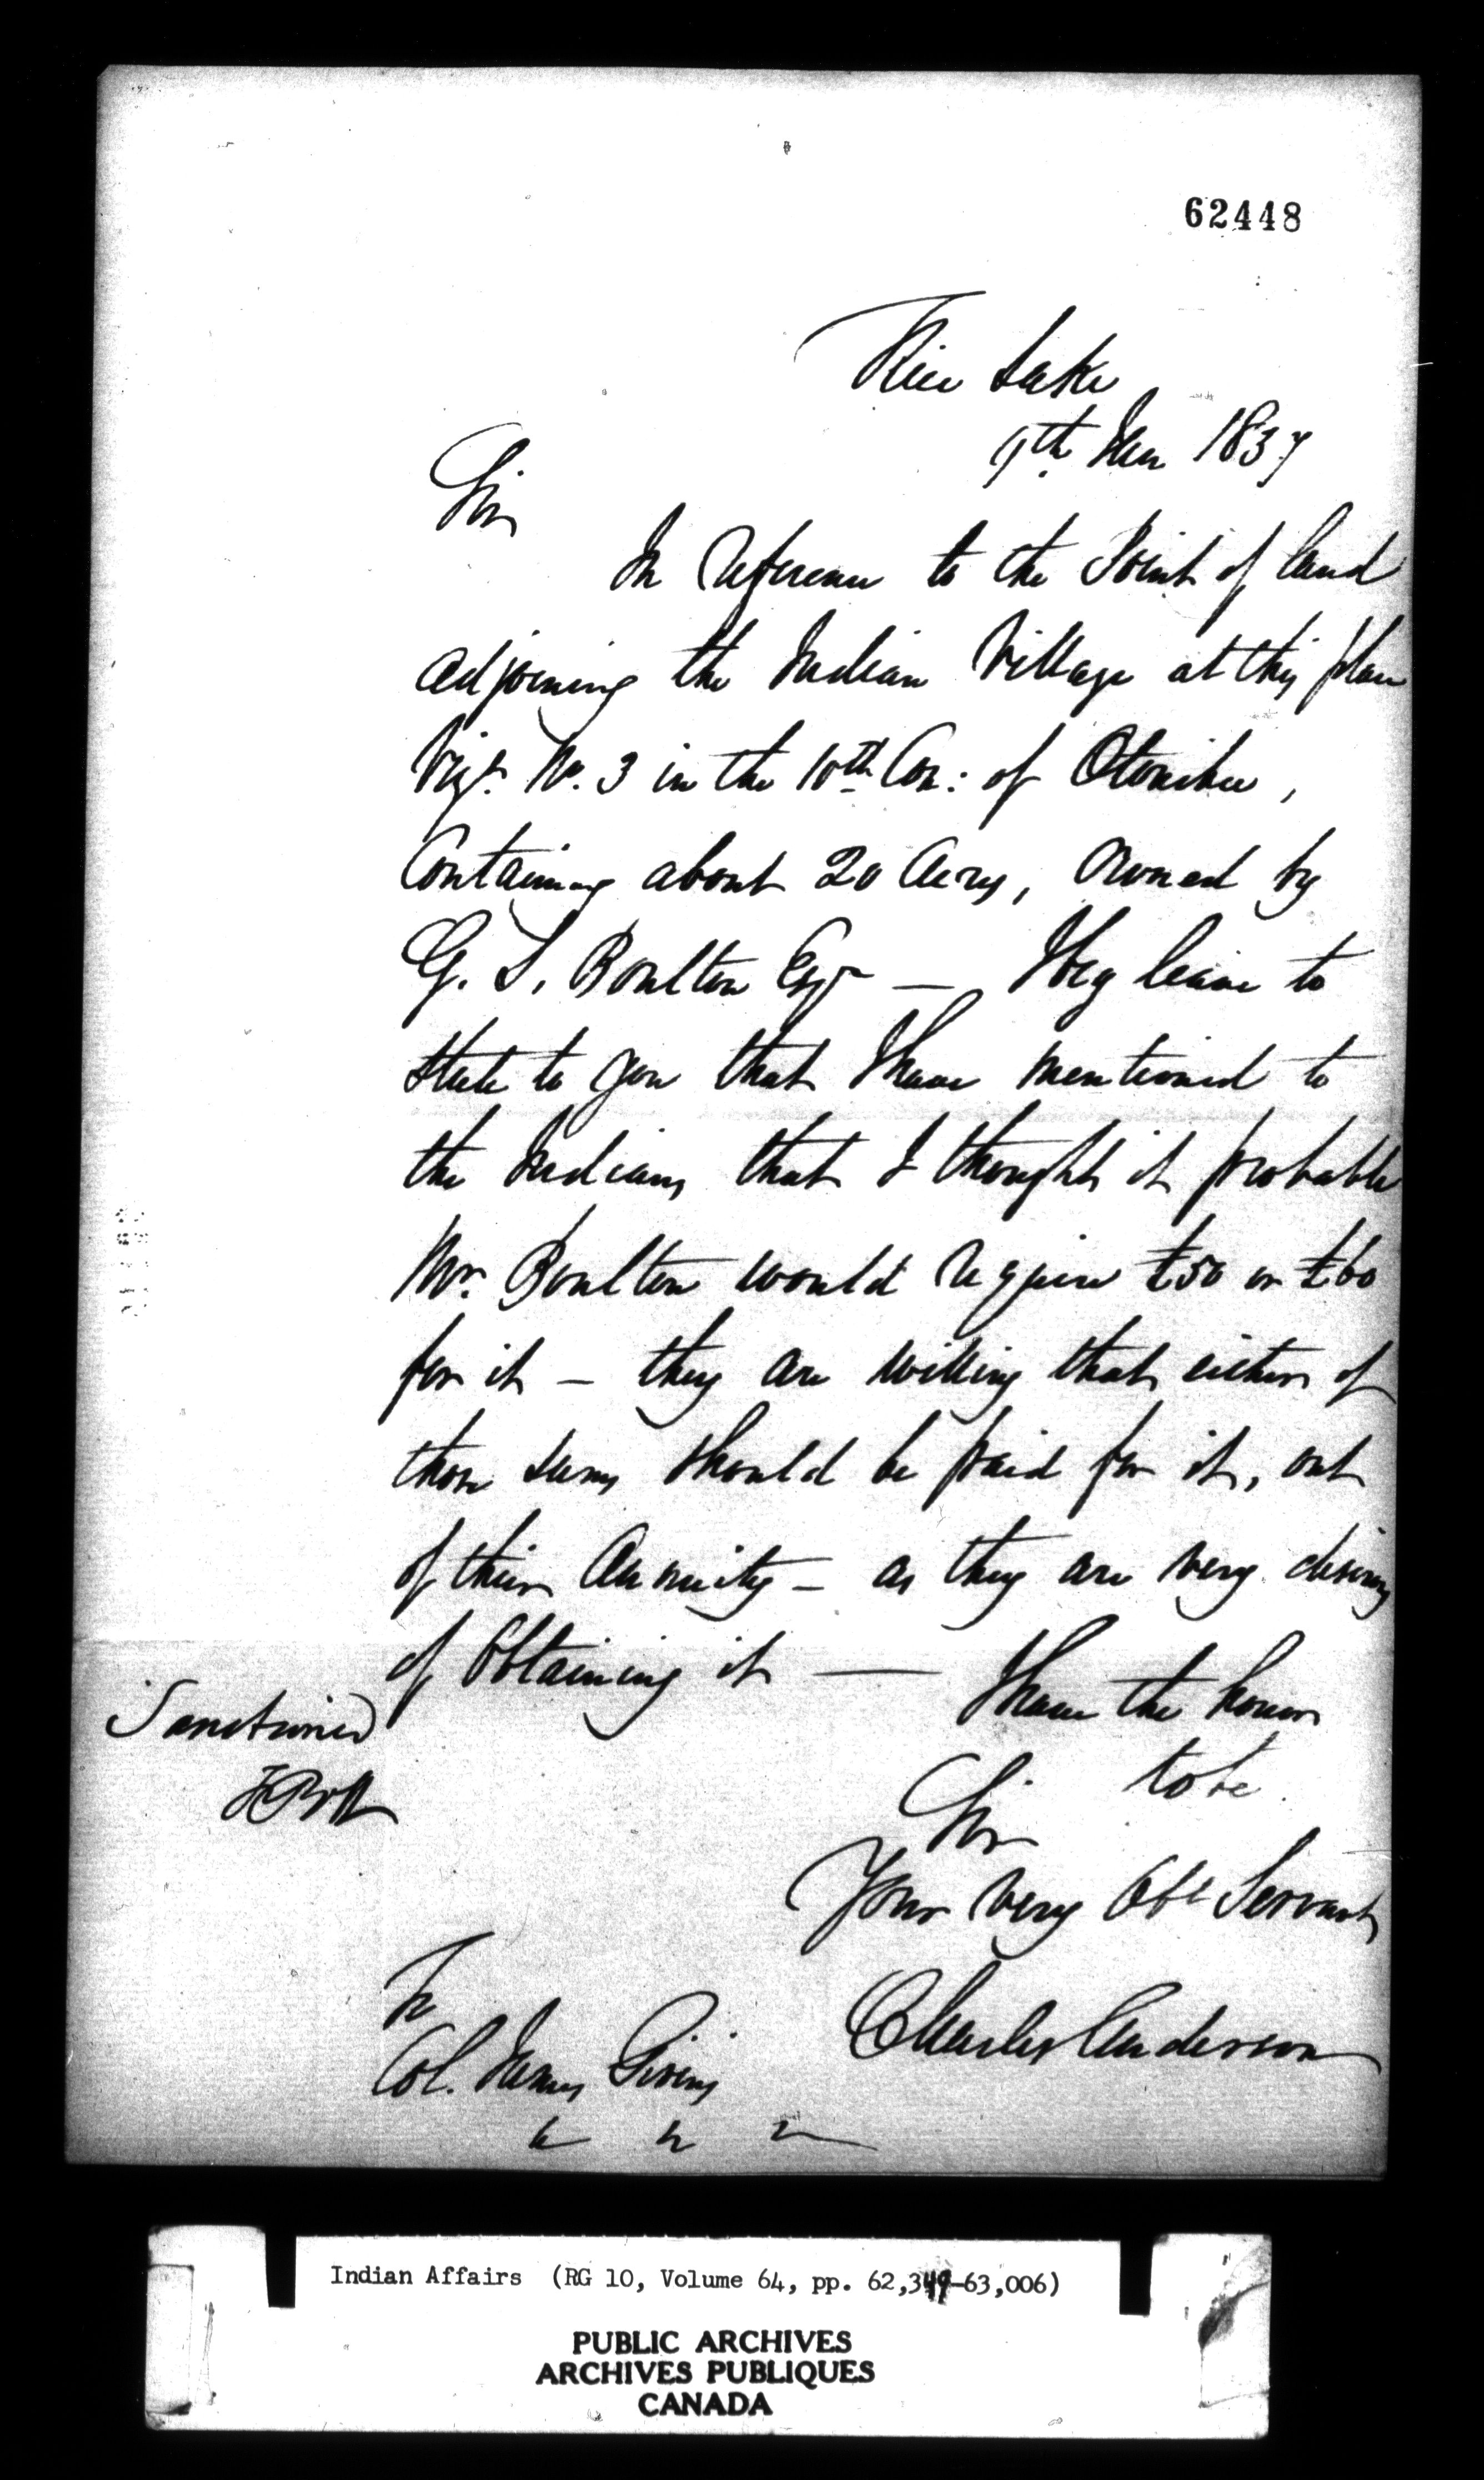 62448
Rice Lake
9th Jan 1837
Sir
In reference to the Point of land
adjoining the Indian Village at this place
Vizt. No. 3 in the 10th Con: of Otonibee,
Containing about 20 Acres, Owned by
G. S. Boulton Esqr — I beg leave to
State to you that I have mentioned to
the Indians that I thought it probable
Mr. Boulton would require £50 or £60
for it – they are willing that either of
those sums should be paid for it, out
of their Annuity – as they are very desirous
of Obtaining it —
I have the honor
to be
Sir
Your Very Obt Servant
Charles Anderson
Sanctioned
FBH
To
Col. James Givins
Indian Affairs (RG 10, Volume 64, pp. 62,349-63,006)
PUBLIC ARCHIVES
ARCHIVES PUBLIQUES
CANADA